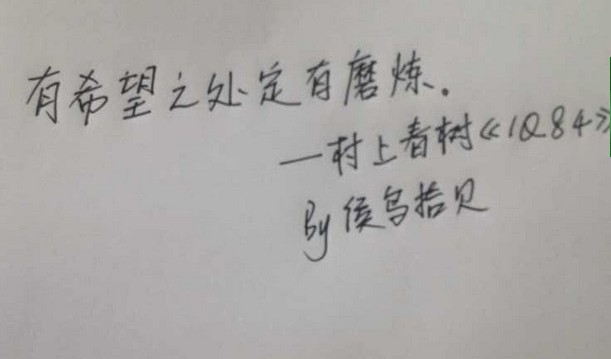 有希望之处定有磨炼。
—村上春树《1Q84》
By 侯鸟拾贝